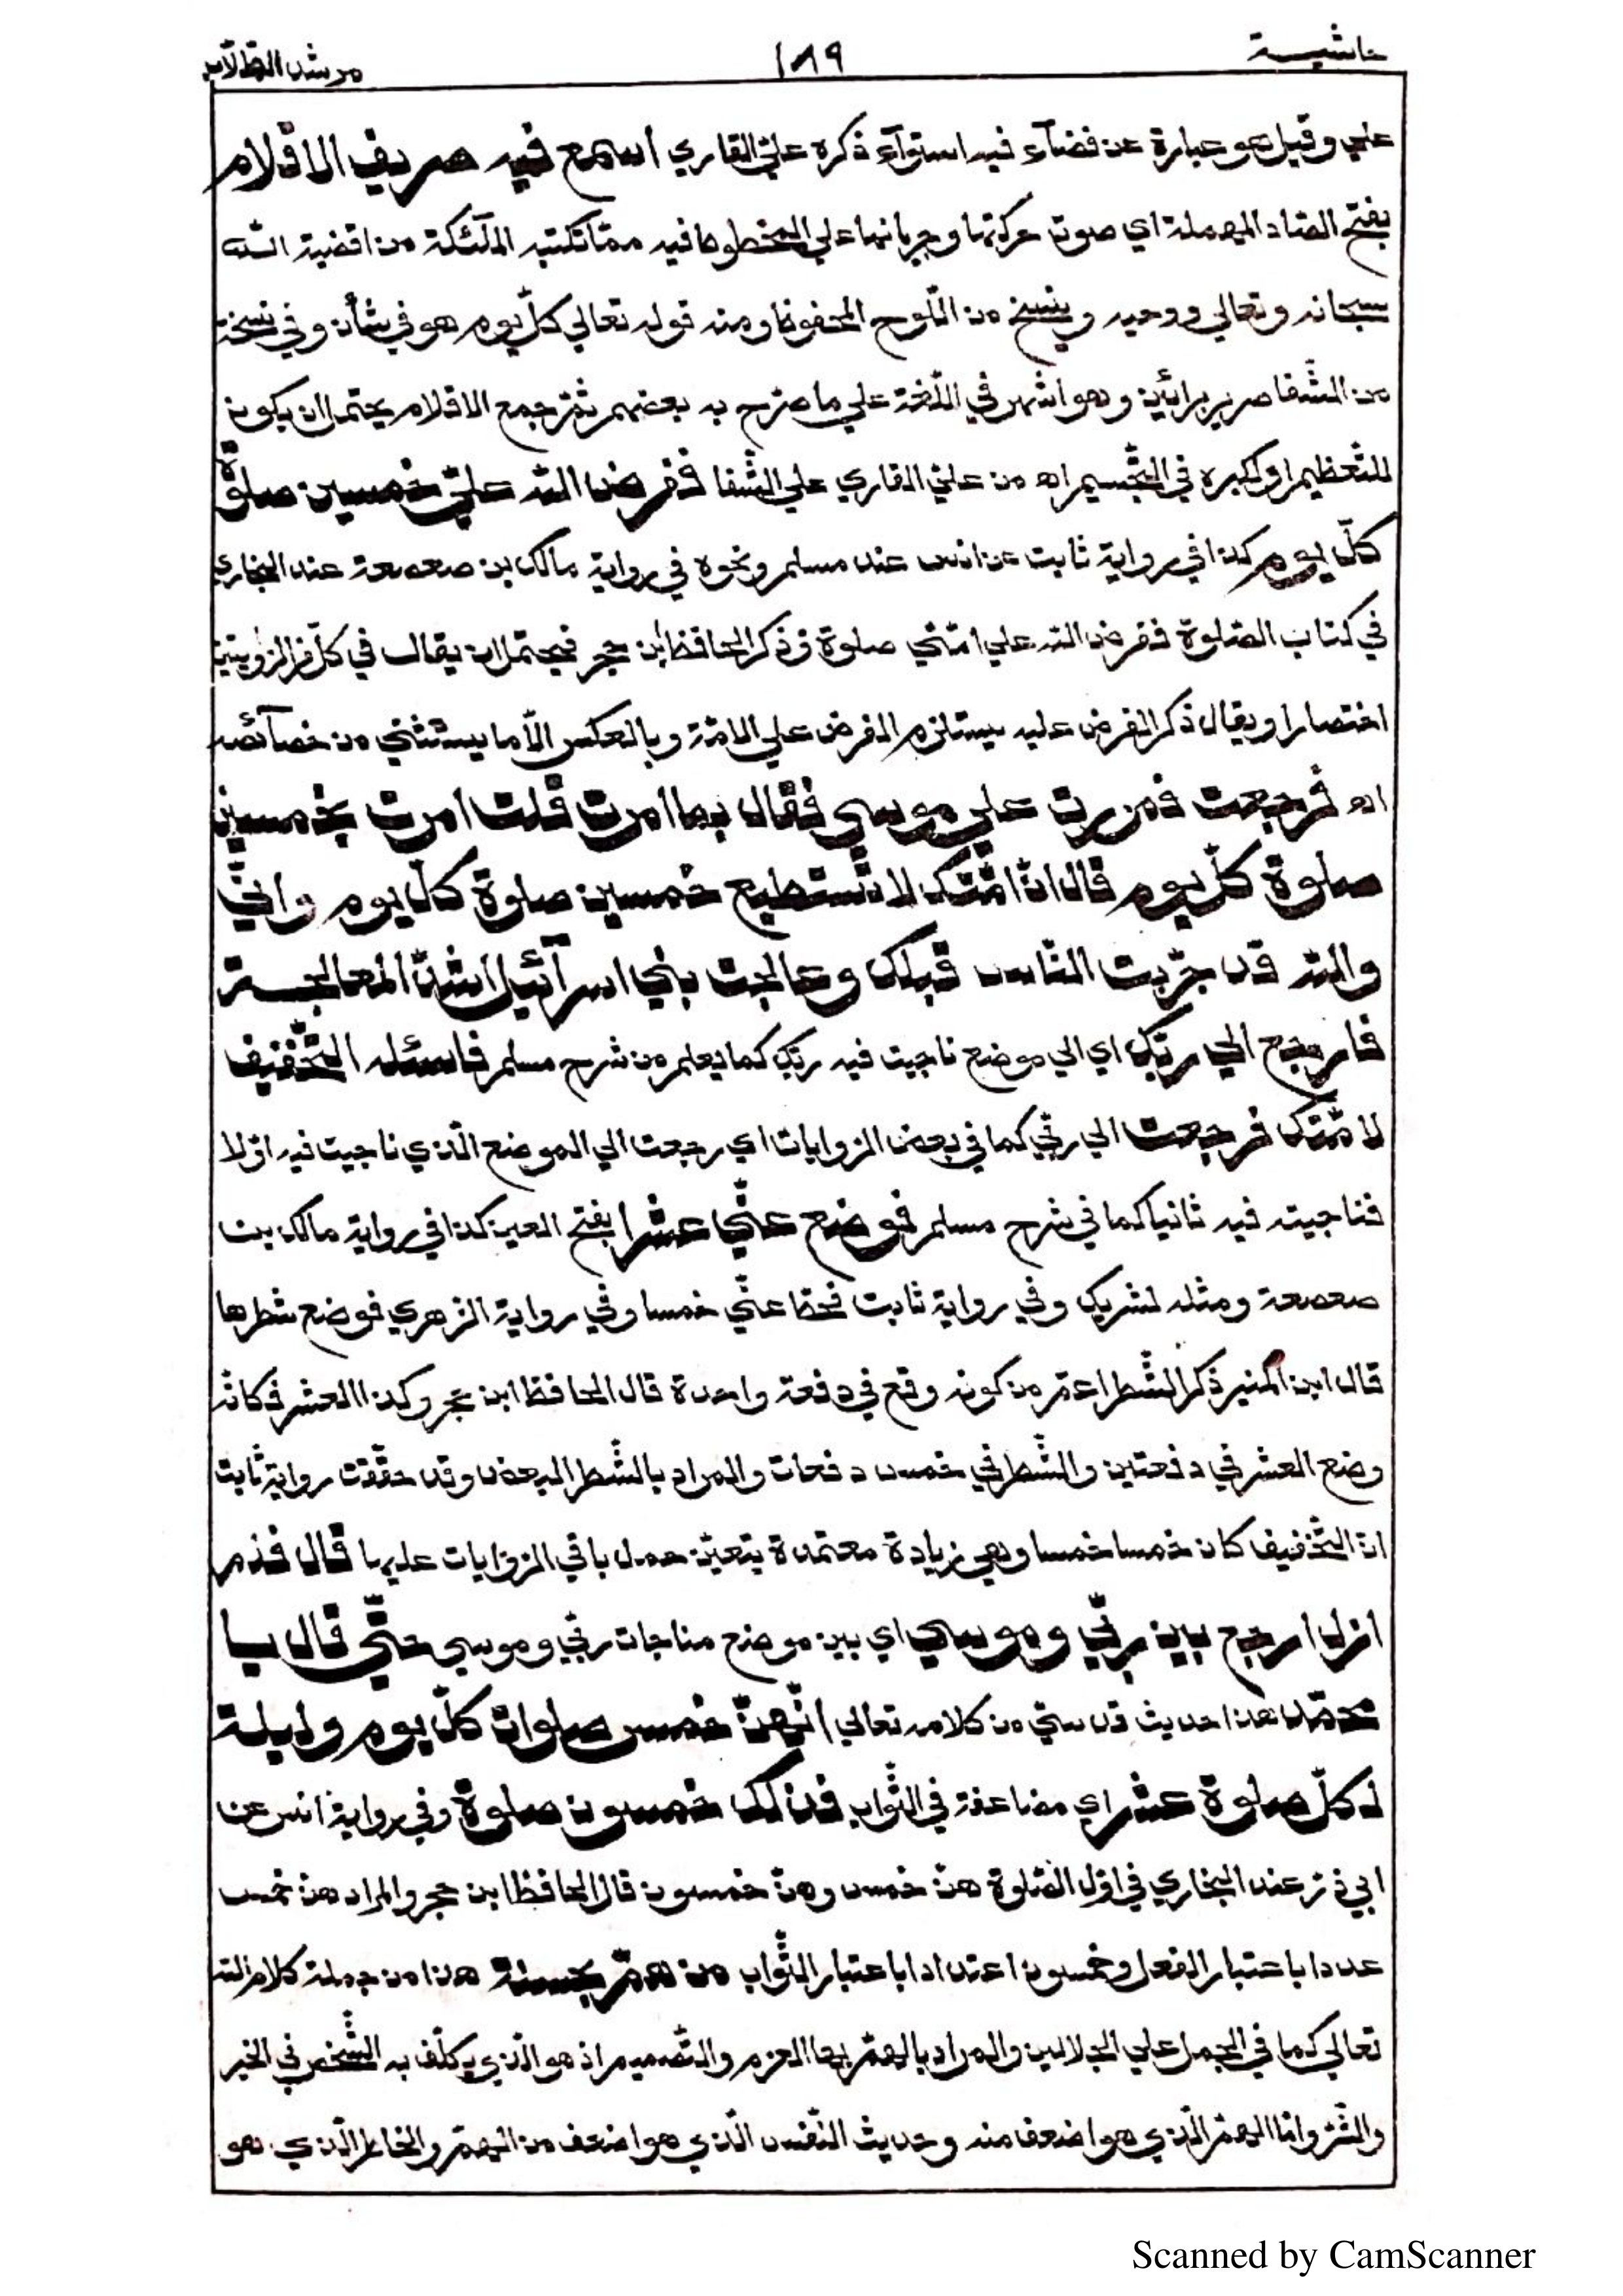 حاشيـــة ١٨٩ مرشد الطّلّاب
علي وقيل هو عبارة عن فضآء فيه استوآء ذكره عليّ القاري أسمع فيه صريف الاقلام
بفتح الصّاد المهملة اي صوت حركتها وجريانها علي المخطوط فيه ممّا تكتبه الملٓئكة من اقضية اللّٰه
سبحانه وتعالي ووحيه وينسخ من اللّوح المحفوظ ومنه قوله تعالي كلّ يوم هو في شأن وفي نسخة
من الشّفا صرير برائين وهو اشهر في اللّغة علي ما صرّح به بعضهم ثمّ جمع الاقلام يحتمل ان يكون
للتّعظيم او لكبره في التّجسيم اه من عليّ القاري علي الشّفا ففرض اللّه عليّ خمسين صلوةً
كلّ يوم كذا في رواية ثابت عن انس عند مسلم ونحوه في رواية مالك بن صعصعة عند البخاري
في كتاب الصّلوة ففرض اللّه علي امّتي صلوة وذكر الحافظ ابن حجر فيحتمل ان يقال في كلّ من الرّوايتين
اختصارا ويقال ذكر الفرض عليه يستلزم الفرض علي الامّة وبالعكس الّا ما يستثني من خصآئصه
اه فرجعت فمررت علي موسي فقال بما امرت قلت امرت بخمسين
صلوة كلّ يوم قال انّ امّتك لا تستطيع خمسين صلوة كلّ يوم وانّي
واللّه قد جرّبت النّاس قبلك وعالجت بني اسرآئيل اشدّ المعالجـــة
فارجع الي ربّك اي الي موضع ناجيت فيه ربّك كما يعلم من شرح مسلم فاسئله التّخفيف
لامّتك فرجعت الي ربّي كما في بعض الرّوايات اي رجعت الي الموضع الّذي ناجيت فيه اوّلا
فناجيته فيه ثانيا كما في شرح مسلم فوضع عنّي عشرا بفتح العين كذا في رواية مالك بن
صعصعة ومثله لشريك وفي رواية ثابت فحطّ عنّي خمسا وفي رواية الزّهري فوضع شطرها
قال ابن المنير ذكر الشّطر اعمّ من كونه وقع في دفعة واحدة قال الحافظ ابن حجر وكذا العشر فكانّه
وضع العشر في دفعتين والشّطر في خمس دفعات والمراد بالشّطر البعض وقد حقّقت رواية ثابت
انّ التّخفيف كان خمسا خمسا وهي زيادة معتمدة يتعيّن حمل باقي الرّوايات عليها قال فلم
ازل ارجع بين ربّي وموسي اي بين موضع مناجات ربّي وموسي حتّي قال يـا
محمّد هذا حديث قدسيّ من كلامه تعالي انّهنّ خمس صلوات كلّ يوم وليلة
لكلّ صلوة عشر اي مضاعفة في الثّواب فذلك خمسون صلوة وفي رواية انس عن
ابي ذرّ عند البخاري في اوّل الصّلوة هنّ خمس وهنّ خمسون قال الحافظ ابن حجر والمراد هنّ خمس
عددا باعتبار الفعل وخمسون اعتدادا باعتبار الثّواب من همّ بحسنة هذا من جملة كلام اللّه
تعالي كما في الجمل علي الجلالين والمراد بالهمّ بها العزم والتّصميم اذ هو الّذي يكلّف به الشّخص في الخير
والشّرّ وامّا الهمّ الّذي هو اضعف منه وحديث النّفس الّذي هو اضعف من الهمّ والخاطر الّذي هو
Scanned by CamScanner